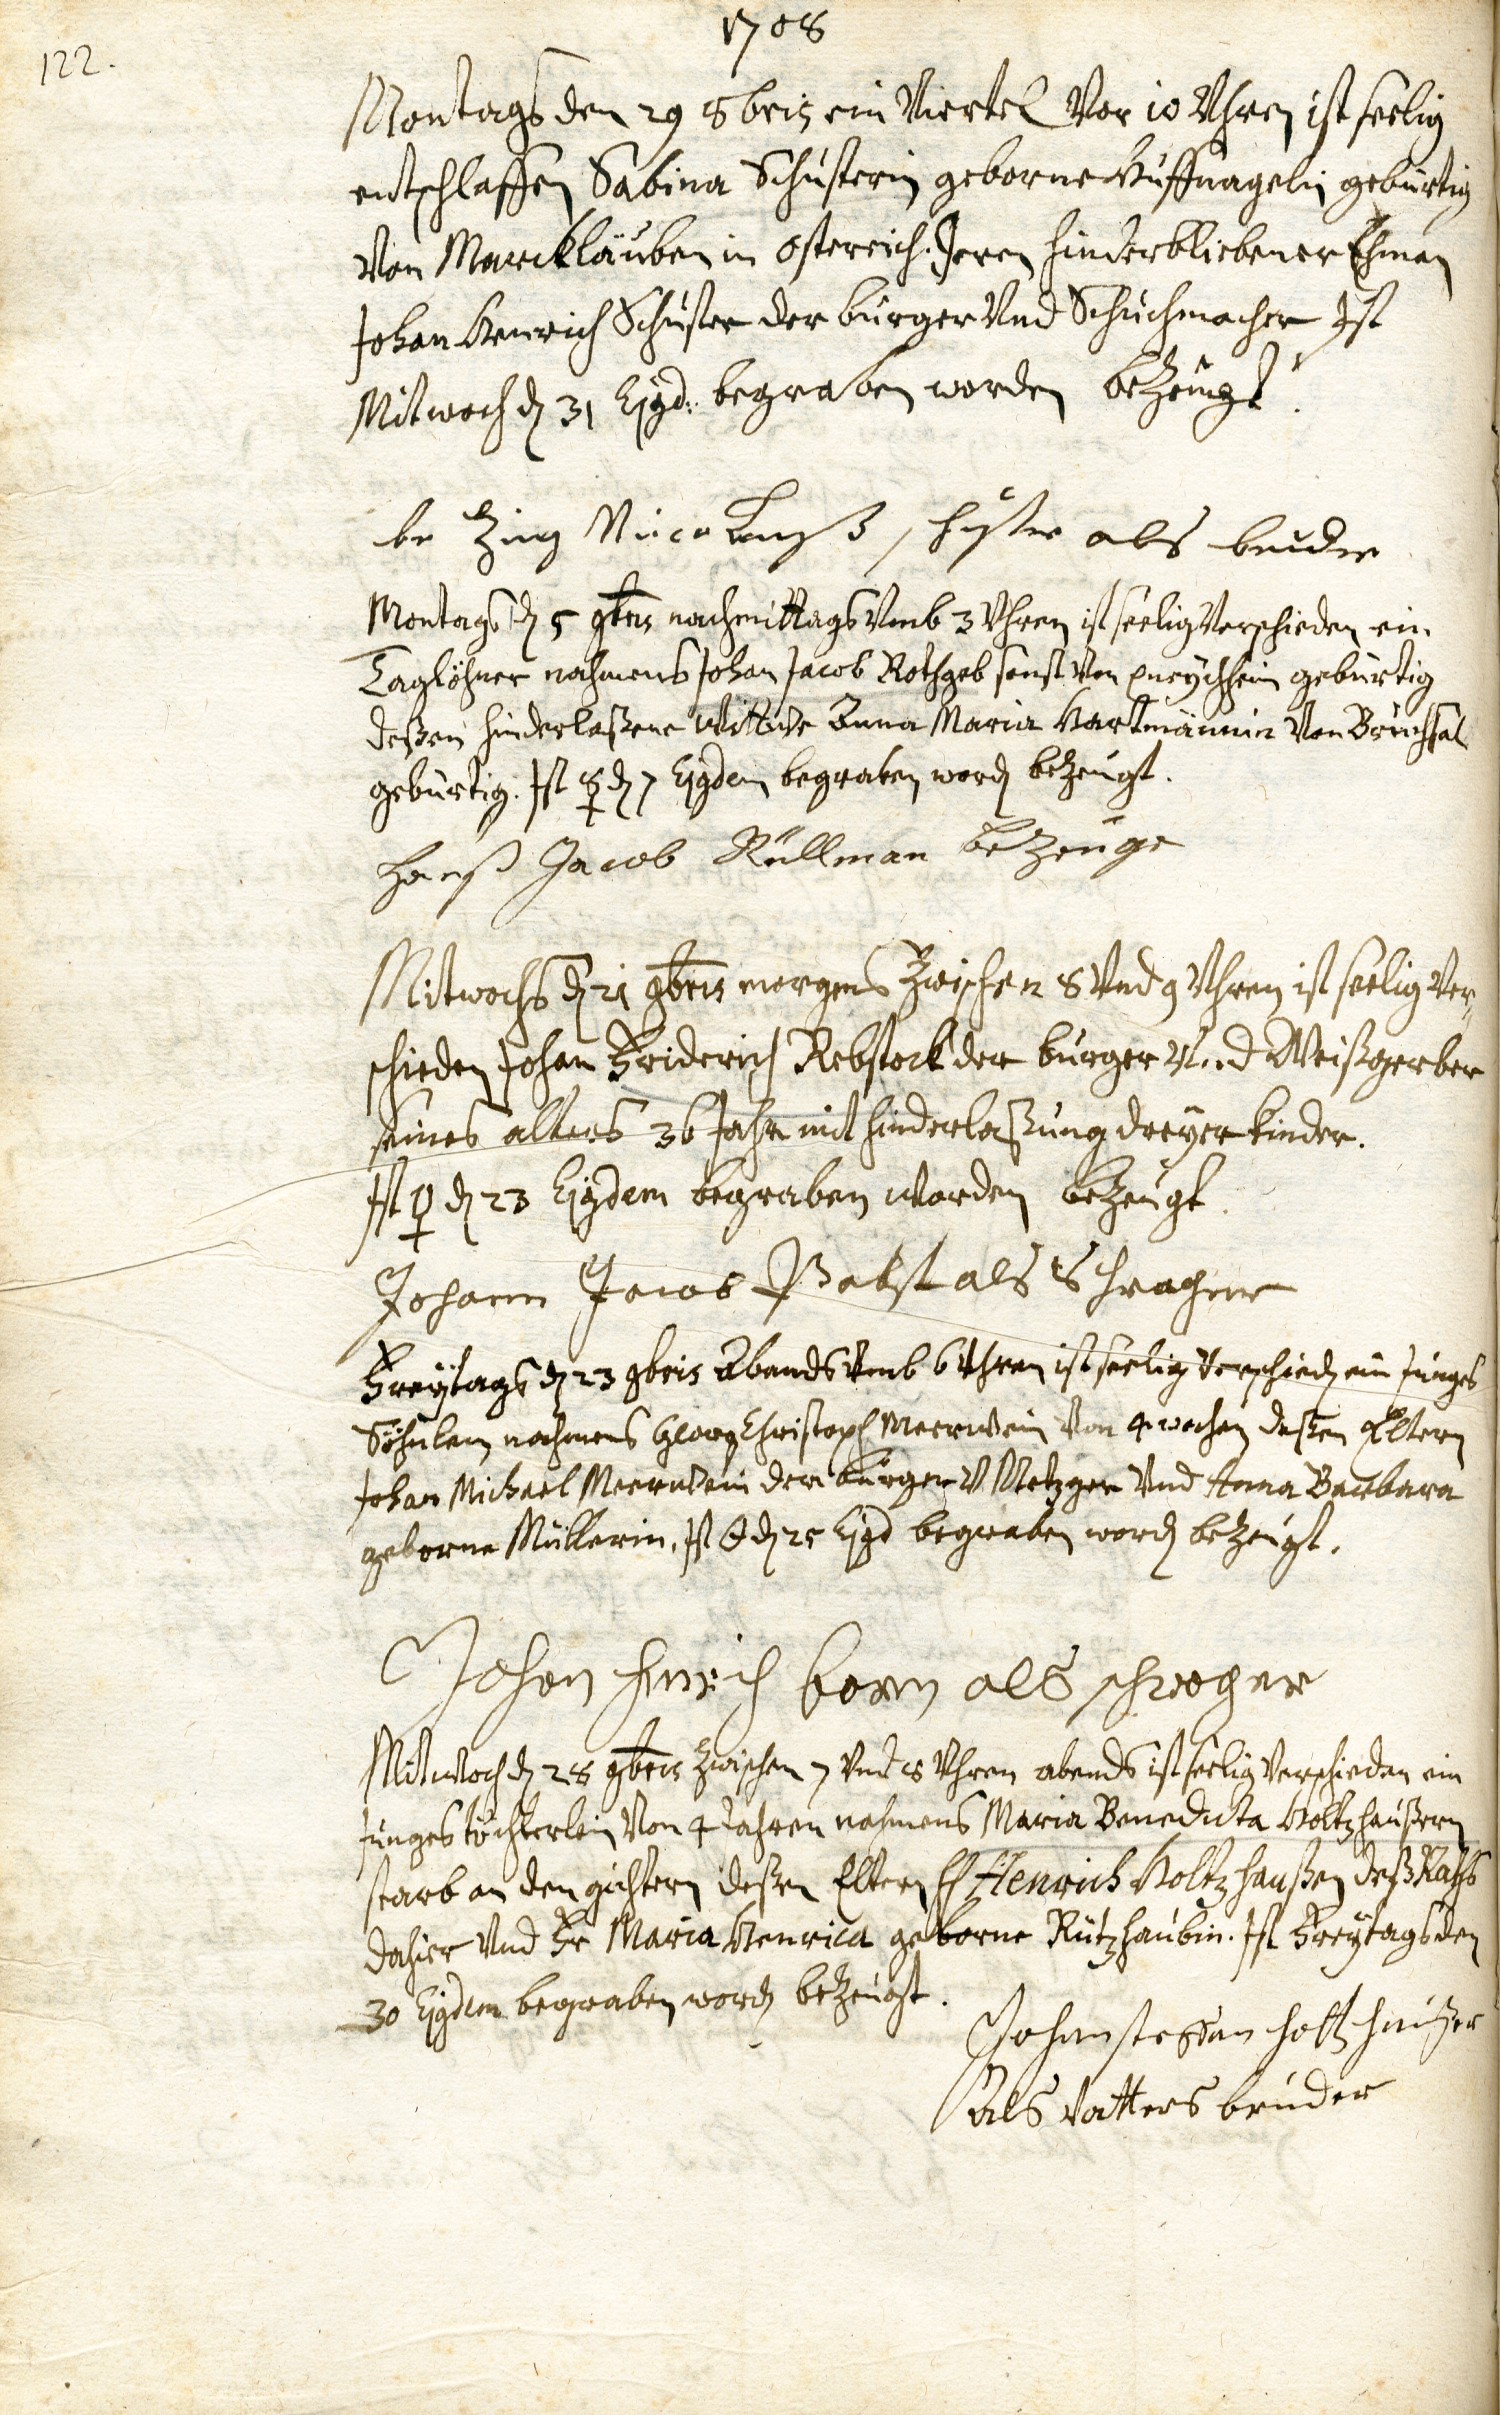 1708
122.
Montags den 29 8bris ein Viertel Vor 10 Uhren ist seelig
entschlaffen Sabina Schusterin geborne Huffnagelin gebürtig
Von Marckläuben in Ostereich. Ihren hinderbliebener Ehman
Johan Henrich Schuster der burger Und Schuchmacher Ist
Mitwoch dẽ 31 Ejgd: begraben worden bezeugt.
be zeug Nicolauß schuster als bruder
Montags dẽ 5 9bris nachmittags Umb 3 Uhren ist seelig Verschieden ein
Taglöhner nahmens Johan Jacob Rothgeb sonst Von gebürtig
deßen hinderlaßene Wittwe Anna Maria Hartmännin Von Bruchsal
gebürtig. Ist ☿ dẽ 7 Ejgdem begraben word bezeugt.
Hanß Jacob Rüllman bezeuge
Mitwochs dẽ 21 9bris morgens Zwischen 8 Und 9 Uhren ist seelig Ver„
schieden Johan Friderich Rebstock der burger Und Weißgerber
seines alters 36 Jahr mit hinderlaßung dreyer kinder.
Ist ♀ dẽ 23 Ejgdem begraben worden bezeugt.
Johann Jacob Pabst als Schwager
Freytags dẽ 23 9bris Abends Umb 6 Uhren ist seelig Verschied ein Junges
Söhnlein nahmens Georg Christoph Meerwein Von 4 wochen deßen Eltern
Johan Michael Meerwein der burger U Metzger Und Anna Barbara
geborne Müllerin. Ist ☉ dẽ 25 Ejgd begraben word bezeugt.
Johan Henrich born als schwoger
Mitwoch dẽ 28 9bris Zwischen 7 Und 8 Uhren abends ist seelig Verschieden ein
Junges töchterlein Von 4 Jahren nahmens Maria Benedicta Holtzhaußern
starb an den gichtern deßen Eltern H Henrich Holtzhaußen deß Raths
dahier Und Fr Maria Henrica geborne Rützhaubin. Ist Freytags den
30 Ejgdem begraben word bezeugt.
Johan stefan holtzhaußer
Als Vatters bruder